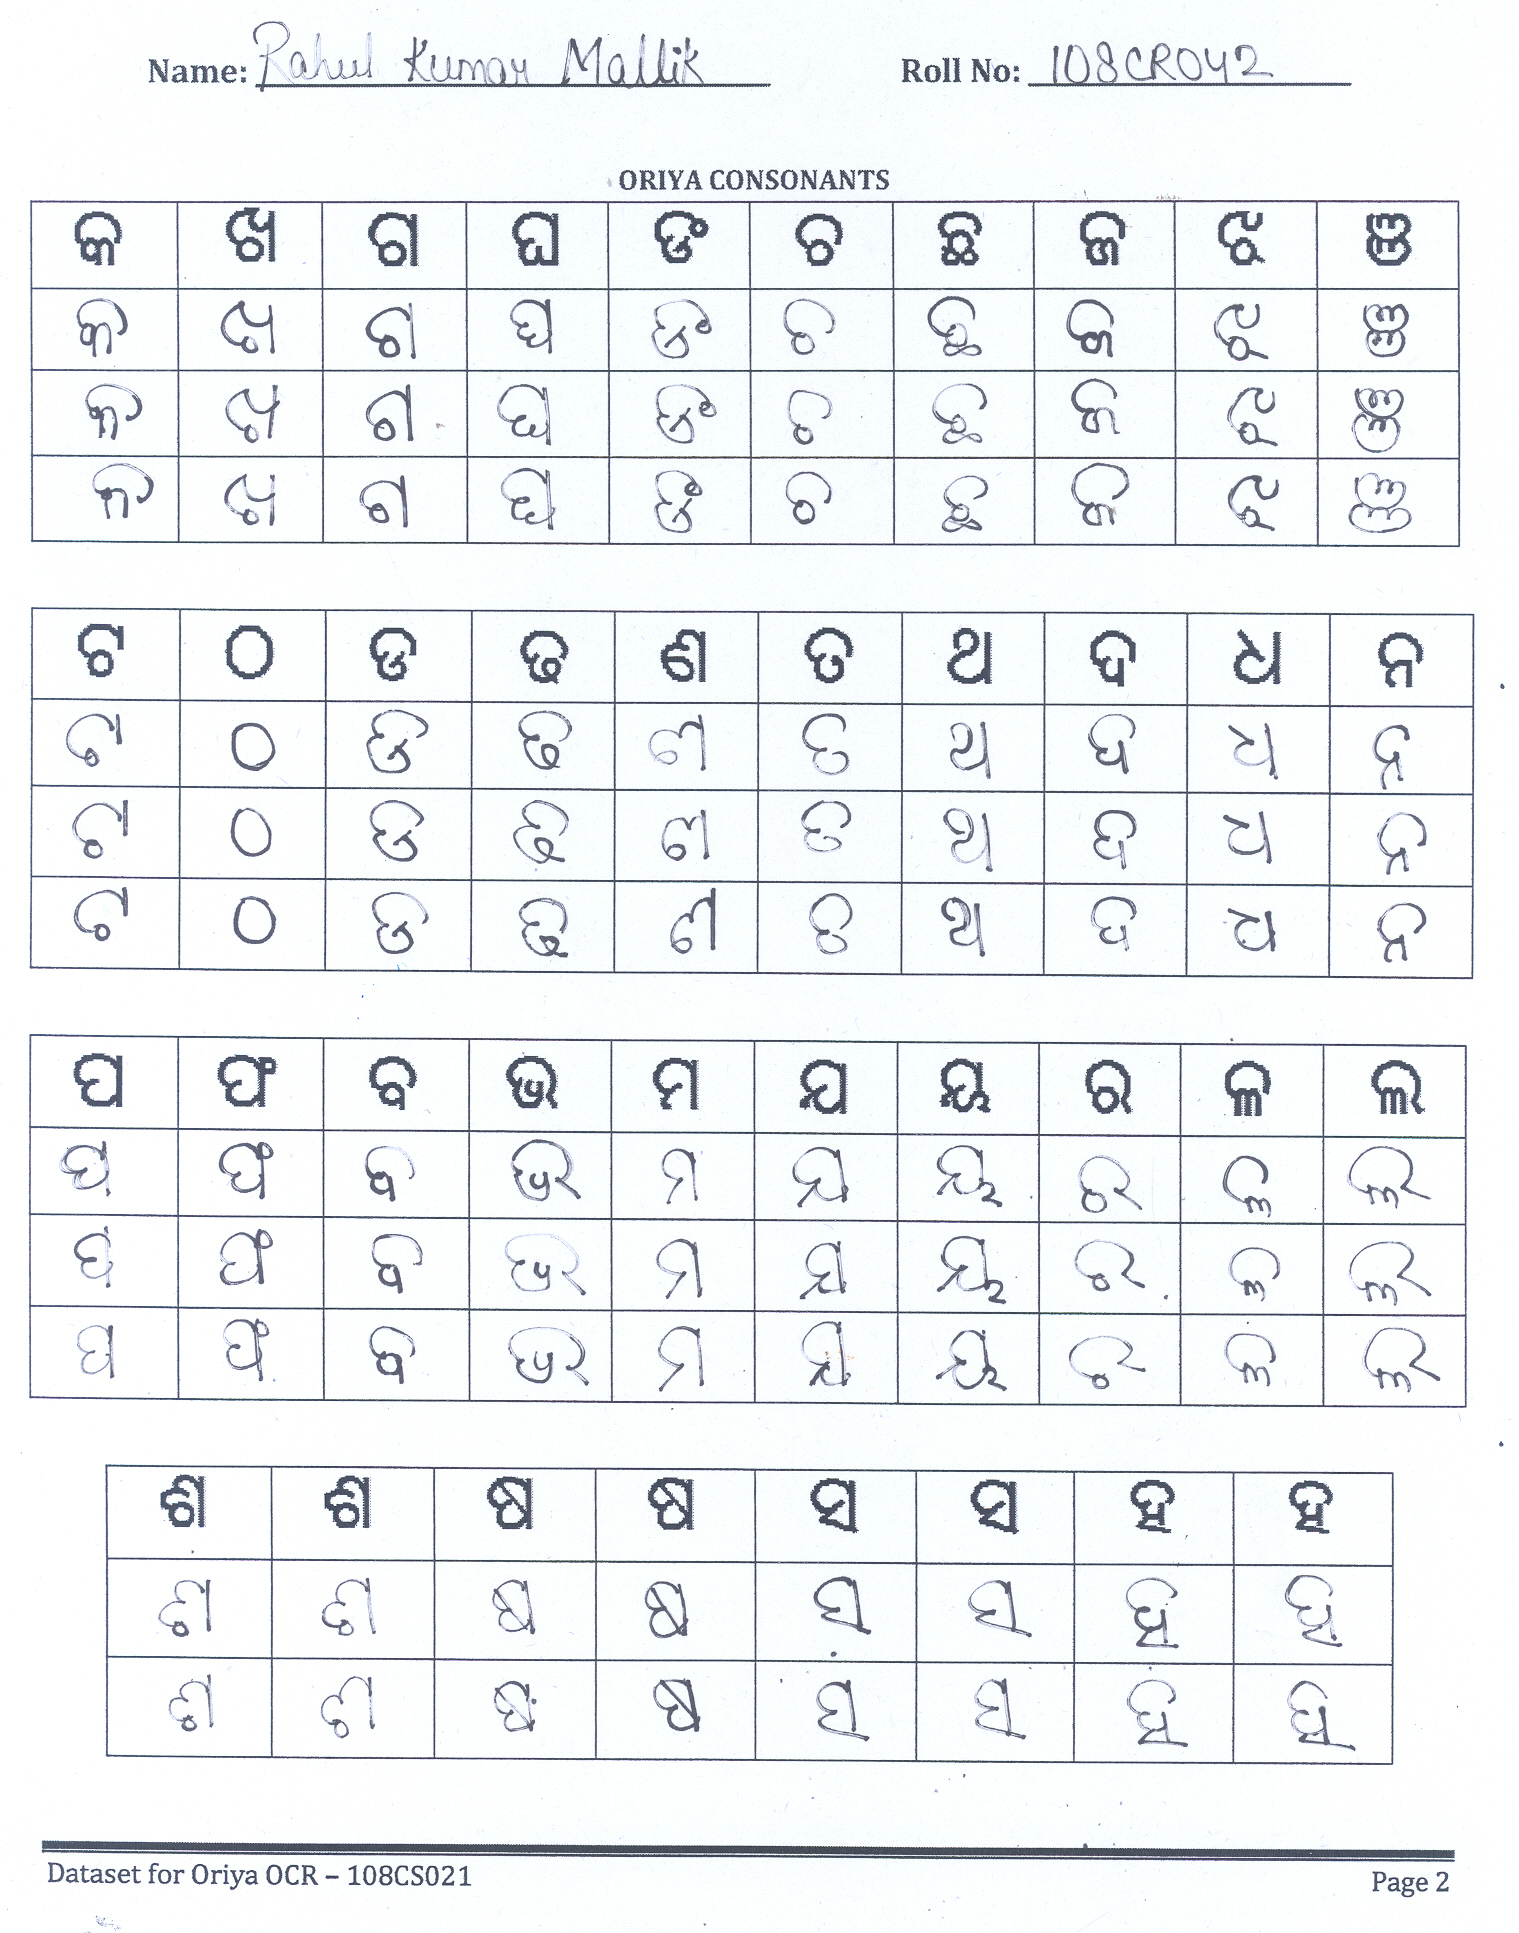 Name: Rahul Kumar Mallik Roll No: 108CR042
ORIYA CONSONANTS
କ ଖ ଗ ଘ ଙ ଚ ଛ ଜ ଝ ଞ
କ ଖ ଗ ଘ ଙ ଚ ଛ ଜ ଝ ଞ
କ ଖ ଗ ଘ ଙ ଚ ଛ ଜ ଝ ଞ
କ ଖ ଗ ଘ ଙ ଚ ଛ ଜ ଝ ଞ
ଟ ଠ ଡ ଢ ଣ ତ ଥ ଦ ଧ ନ
ଟ ଠ ଡ ଢ ଣ ତ ଥ ଦ ଧ ନ
ଟ ଠ ଡ ଢ ଣ ତ ଥ ଦ ଧ ନ
ଟ ଠ ଡ ଢ ଣ ତ ଥ ଦ ଧ ନ
ପ ଫ ବ ଭ ମ ଯ ୟ ର ଳ ଲ
ପ ଫ ବ ଭ ମ ଯ ୟ ର ଳ ଲ
ପ ଫ ବ ଭ ମ ଯ ୟ ର ଳ ଲ
ପ ଫ ବ ଭ ମ ଯ ୟ ର ଳ ଲ
ଶ ଶ ଷ ଷ ସ ସ ହ ହ
ଶ ଶ ଷ ଷ ସ ସ ହ ହ
ଶ ଶ ଷ ଷ ସ ସ ହ ହ
Dataset for Oriya OCR – 108CS021 Page 2